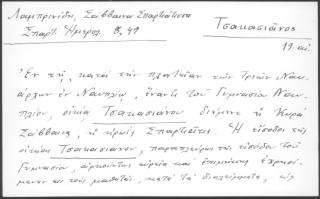 Λαμπρινίδη, Σάββαινα Σπαρτιάτισσα
Σπαρτ. Ημερολ. 8, 49
Τσακασιάνος
19 αι.
Ἐν τῇ, κατὰ τὴν πλατεῖαν τῶν Τριῶν Ναυ-
άρχων ἐν Ναυπλίῳ, ἔναντι τοῦ Γυμνασίου Ναυ-
πλίου, οἰκίᾳ Τσακασιάνου διέμενε ἡ Κυρά
Σάββαινα, ἡ ἡρωίς Σπαρτιάτις. Ἡ εἴσοδος τῆς
οἰκίας Τσακασιάνου, παραπλεύρως τῆς εἰσόδου τοῦ
Γυμνασίου, ἀρκούντως εὐρεῖα καὶ ἐπιμήκης ἐχρησί-
μευεν εἰς τοὺς μαθητὰς κατὰ τὰ διαλείμματα, ὡς